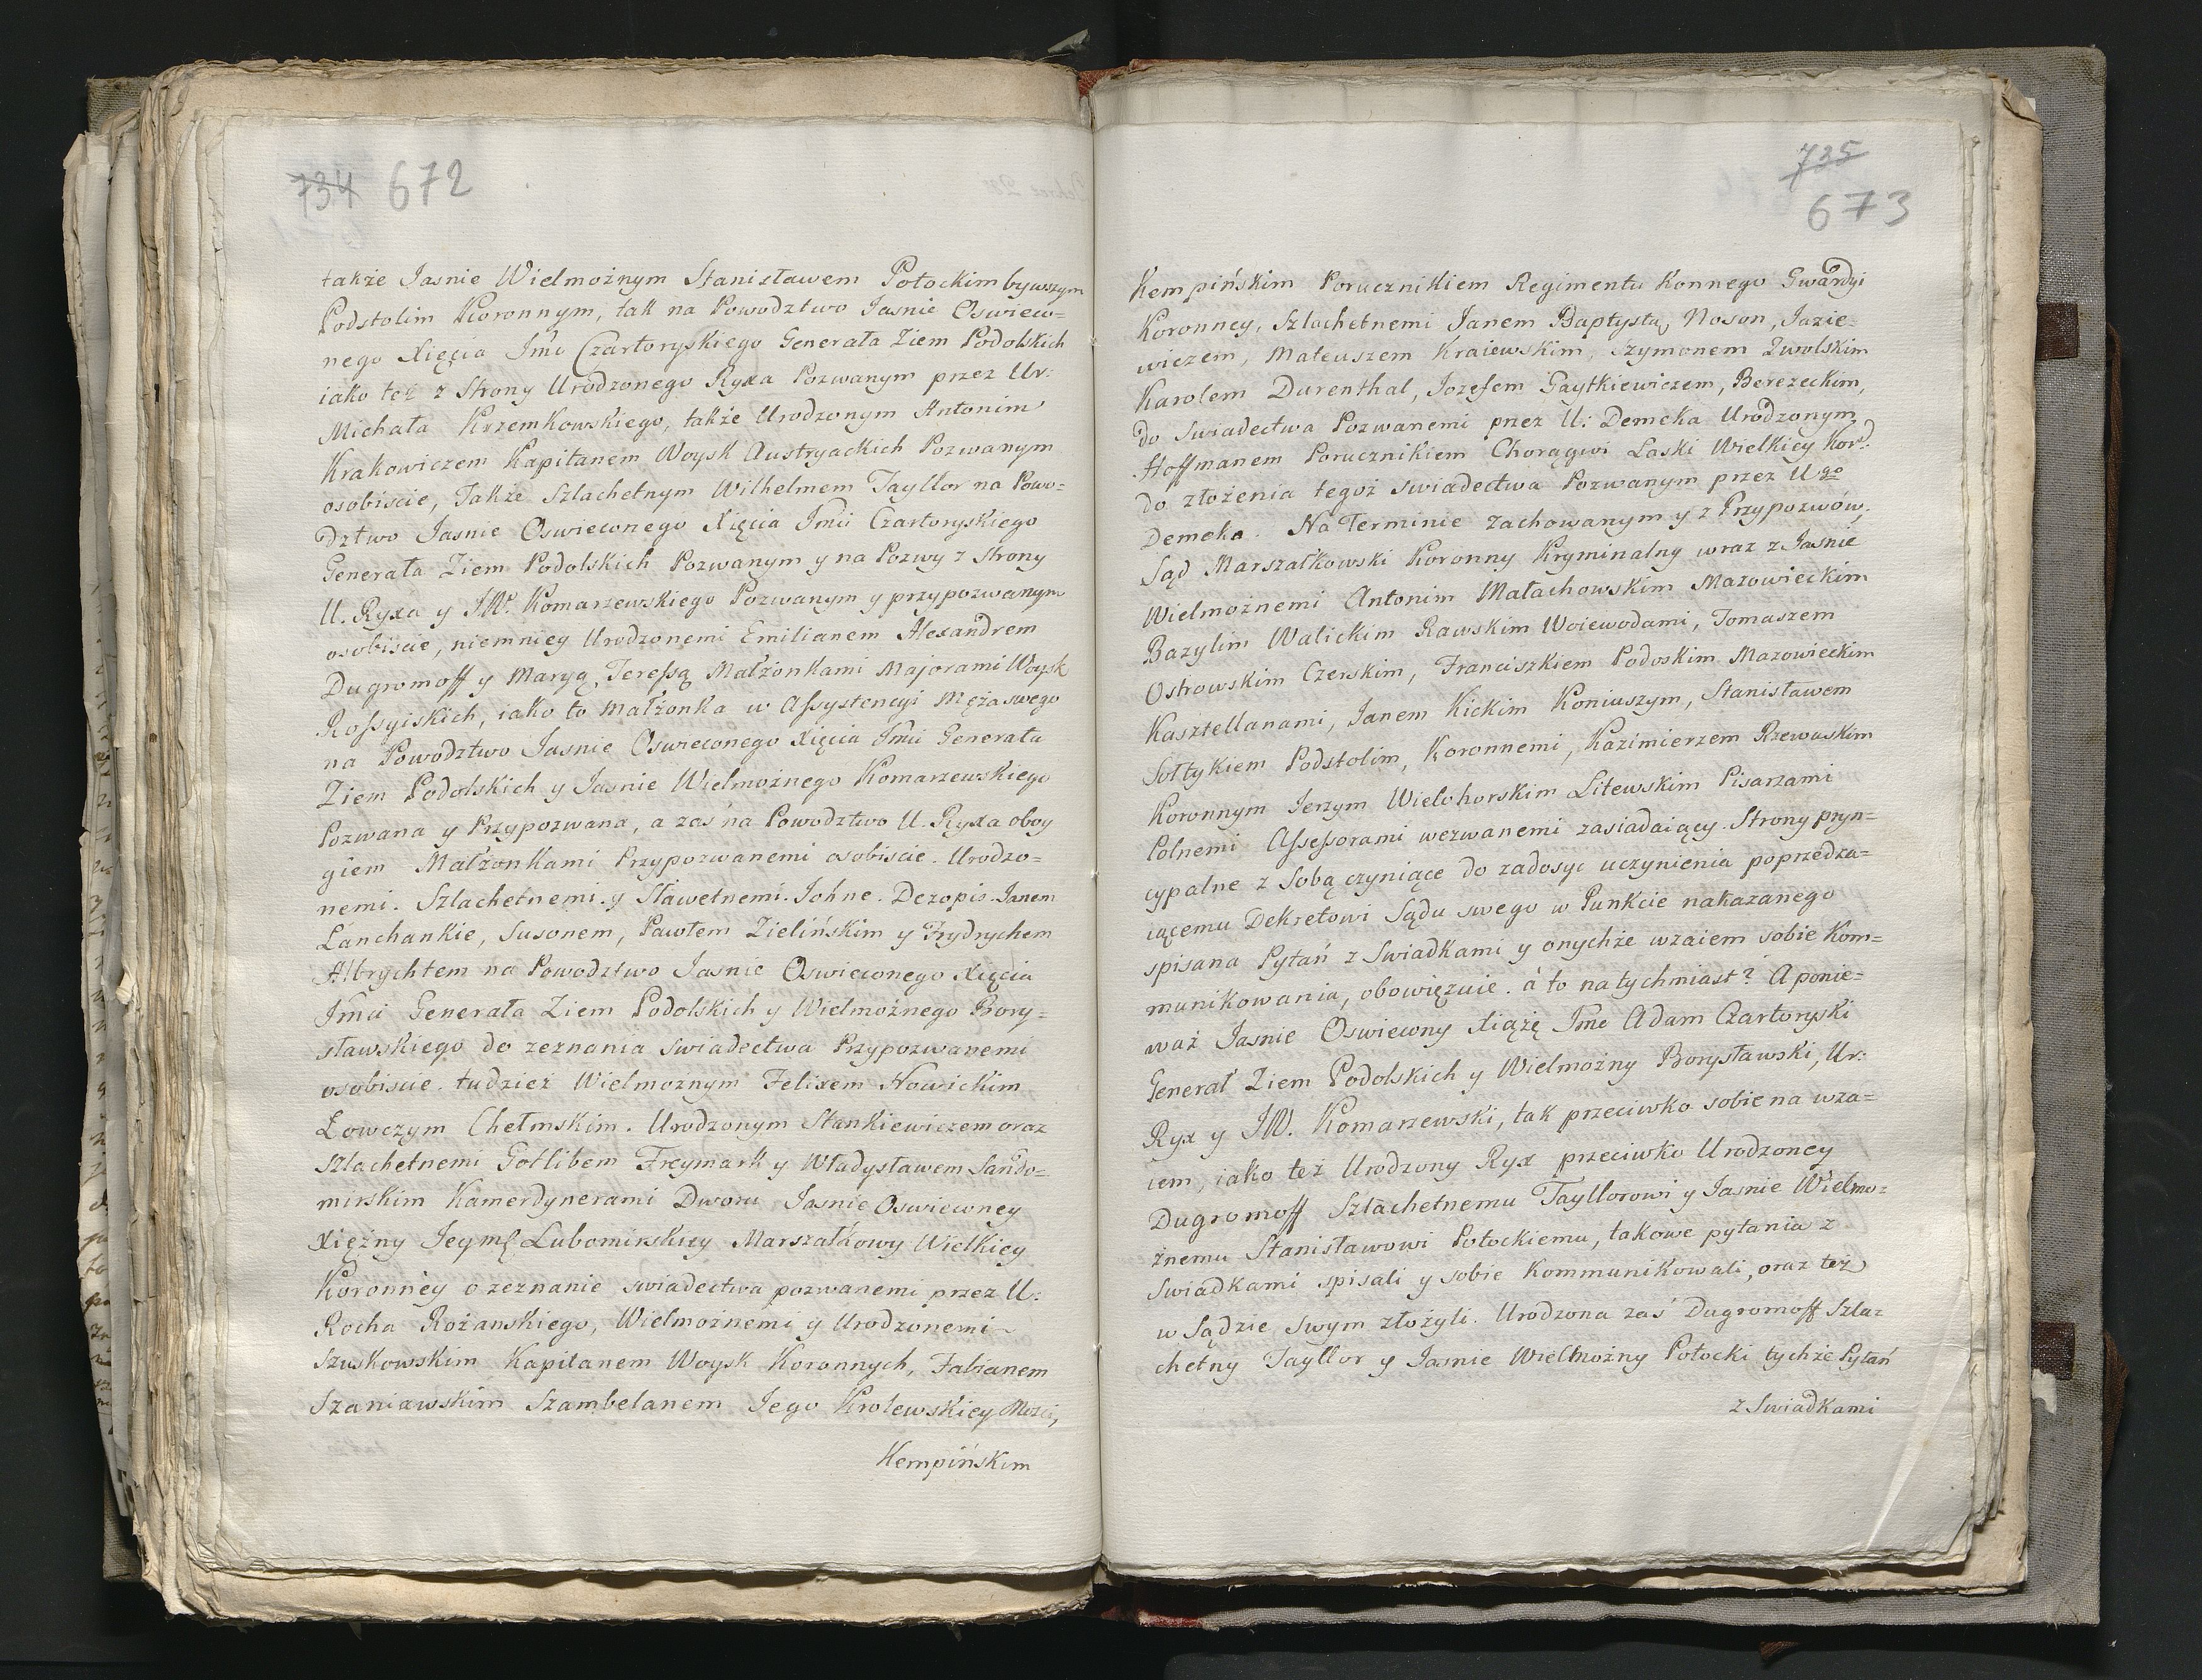 734 672
także Jasnie Wielmożnym Stanisławem Potockim bywszym
Podstolim Koronnym, tak na Powodztwo Jasnie Oswiew=
nego Xięcia Jmci Czartoryskiego Generała Ziem Podolskich
iako też z Strony Urodzonego Ryxa Pozwanym przez Ur:
Michała Krzemkowskiego, także Urodzonym Antonim
Krakowiczem Kapitanem Woysk Austryackich Pozwanym
osobiscie, Także Szlachetnym Wilhelmem Tayllor na Powo=
dztwo Jasnie Oswieconego Xięcia Jmci Czartoryskiego
Generała Ziem Podolskich Pozwanym y na Pozwy z Strony
U. Ryxa y JW. Komarzewskiego Pozwanym y przypozwanym
osobiscie, niemniey Urodzonemi Emilianem Alexandrem
Dugromoff y Maryą Teressą Małżonkami Majorami Woysk
Rossyiskich, iako to Małżonka w Assystencyi Męża swego
na Powodztwo Jasnie Oswieconego Xięcia Jmci Generała
Ziem Podolskich y Jasnie Wielmożnego Komarzewskiego
Pozwana y Przypozwana, a zaś na Powodztwo U. Ryxa oboy
giem Małżonkami Przypozwanemi osobiscie. Urodzo=
nemi. Szlachetnemi. y Sławetnemi. Johne. Dezopis. Janem
Lanchankie, Susonem, Pawłem Zielińskim y Frydrychem
Albrychtem na Powodztwo Jasnie Oswieconego Xięcia
Jmci Generała Ziem Podolskich y Wielmożnego Bory=
sławskiego do zeznania swiadectwa Przypozwanemi
osobiscie. tudzież Wielmożnym Felixem Nowickim
Łowczym Chełmskim. Urodzonym Stankiewiczem oraz
Szlachetnemi Gotlibem Freymark y Władysławem Sando=
mirskim Kamerdynerami Dworu Jasnie Oswiewney
Xiężny Jeymę Lubomirskiey Marszałkowy Wielkiey
Koronney o zeznanie swiadectwa pozwanemi przez U:
Rocha Rożanskiego, Wielmożnemi y Urodzonemi
Szuskowskim Kapitanem Woysk Koronnych, Fabianem
Szaniawskim Szambelanem Jego Krolewskiey Mszci,
Kempińskim
735
673
Kempińskim Porucznikiem Regimentu Konnego Gwardyi
Koronney, Szlachetnemi Janem Baptystą Noson, Jazie=
wiczem, Mateuszem Kraiewskim, Szymonem Zwolskim
Karolem Durenthal, Jozefem Gaytkiewiczem, Berezeckim,
do Swiadectwa Pozwanemi przez U: Demeka Urodzonym
Hoffmanem Porucznikiem Chorągwi Laski Wielkiey Kord:
do złożenia tegoż swiadectwa Pozwanym przez Ugo
Demeka. Na Terminie zachowanym y z Przypozwów,
Sąd Marszałkowski Koronny Kryminalny wraz z Jasnie
Wielmożnemi Antonim Małachowskim Mazowieckim
Bazylim Walickim Rawskim Woiewodami, Tomaszem
Ostrowskim Czerskim, Franciszkiem Podoskim Mazowieckim
Kasztellanami, Janem Kickim Koniuszym, Stanisławem
Sołtykiem Podstolim, Koronnemi, Kazimierzem Rzewuskim
Koronnym Jerzym Wielohorskim Litewskim Pisarzami
Polnemi Assessorami wezwanemi zasiadaiący. Strony pryn=
cypalne z Sobą czyniące do zadosyc uczynienia poprzedza=
iącemu Dekretowi Sądu swego w Punkcie nakazanego
spisana Pytań z Swiadkami y onychże wzaiem sobie Kom=
munikowania, obowięzuie. à to natychmiast? A ponie=
waż Jasnie Oswiewny Xiążę Jmc Adam Czartoryski
Generał Ziem Podolskich y Wielmożny Borysławski, Ur:
Ryx y JW. Komarzewski, tak przeciwko sobie na wza=
iem, iako też Urodzony Ryx przeciwko Urodzoney
Dugromoff Szlachetnemu Tayllorowi y Jasnie Wielmo=
żnemu Stanisławowi Potockiemu, takowe pytania z
Swiadkami spisali y sobie Kommunikowali, oraz też
w Sądzie swym złożyli. Urodzona zaś Dugromoff Szla=
chetny Tayllor y Jasnie Wielmożny Potocki tychże Pytań
z Swiadkami